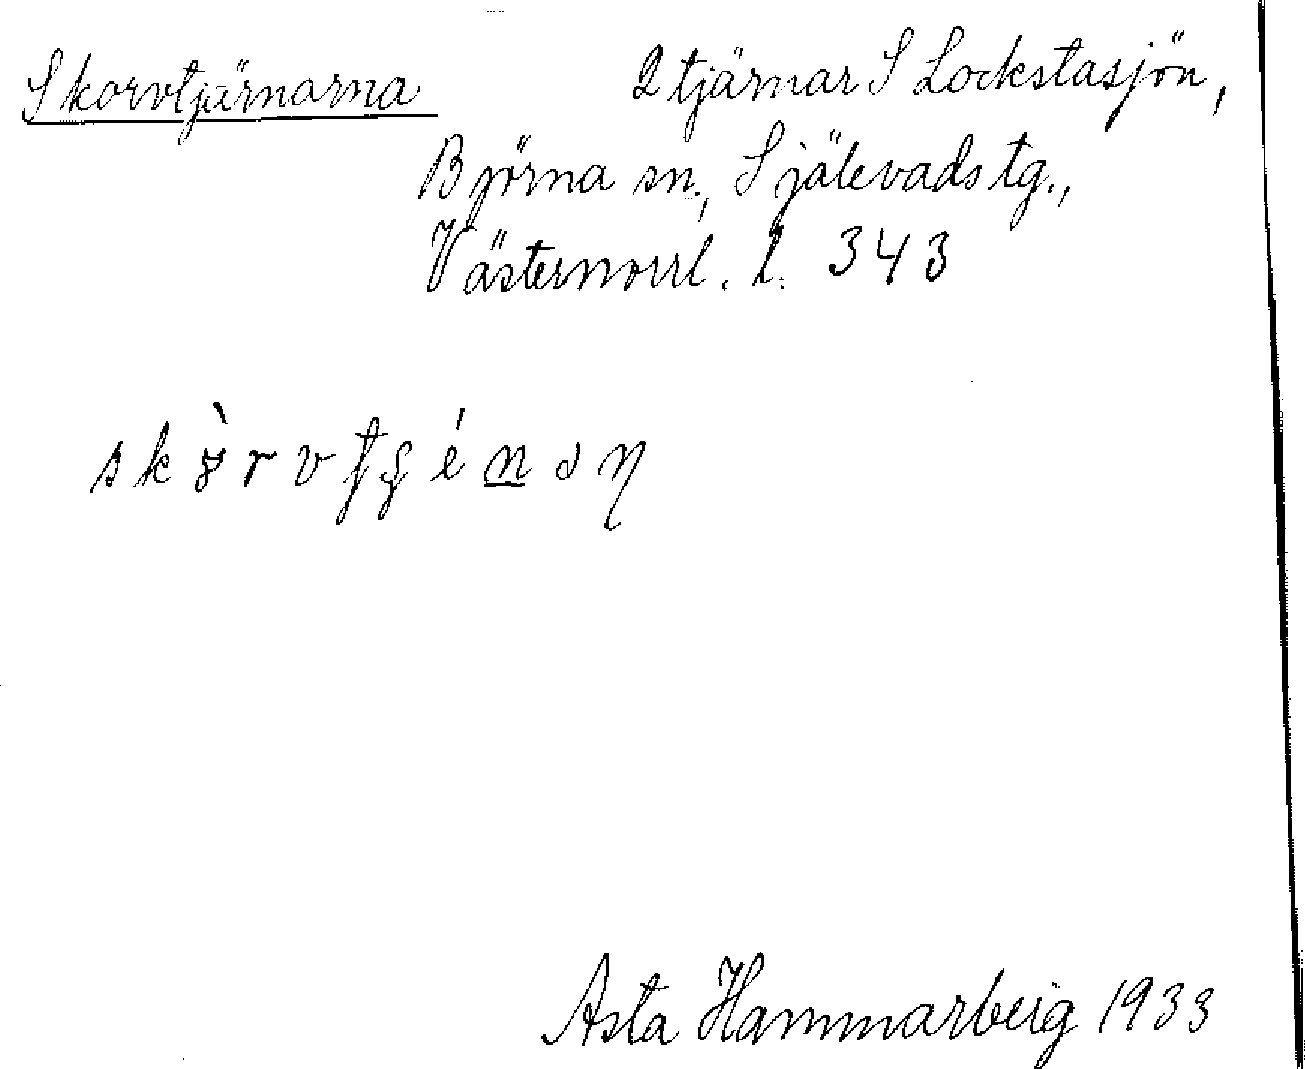 Skorvtjärnarna 2 tjärnar S Lockstasjön,
Björna sn., Själevads tg.,
Västernorrl. l. 343
Asta Hammarberg 1933